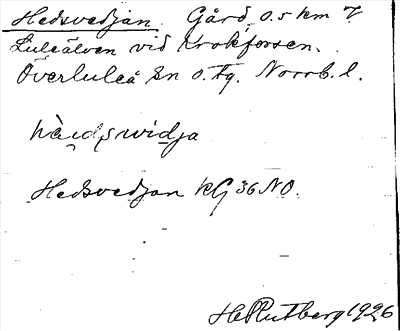 Hedsvedjan. Gård, 0.5 km
Luleälven vid Krokforsen.
Överluleå sn o. tg. Norrb. l.
Hedsvedjan KG 36 NO.
H. Plutberg 1926